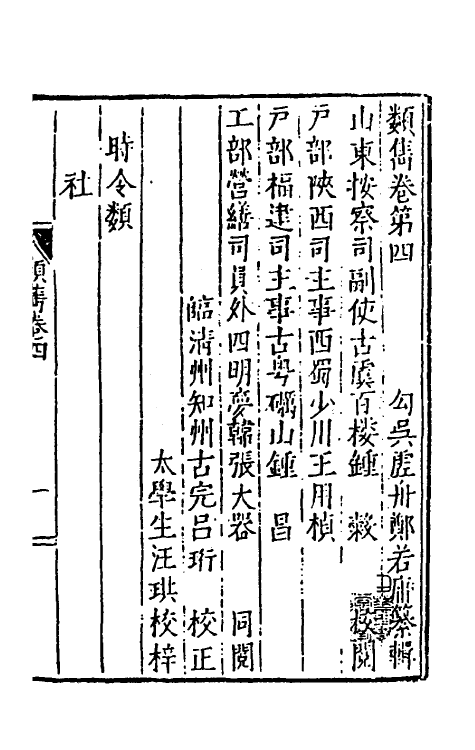 類雋卷第四 勾吳虛舟鄭若庸纂輯
山東按察司副使古虞百楼鍾穀 校閱
戶部陝西司主事西蜀少川王用楨
戶部福建司主事古粤礪山鍾昌
工部營繕司員外四明夢韓張大器 同閱
臨清州知州古完呂珩 校正
太學生汪珙校梓
時令類
社
類雋卷四 一